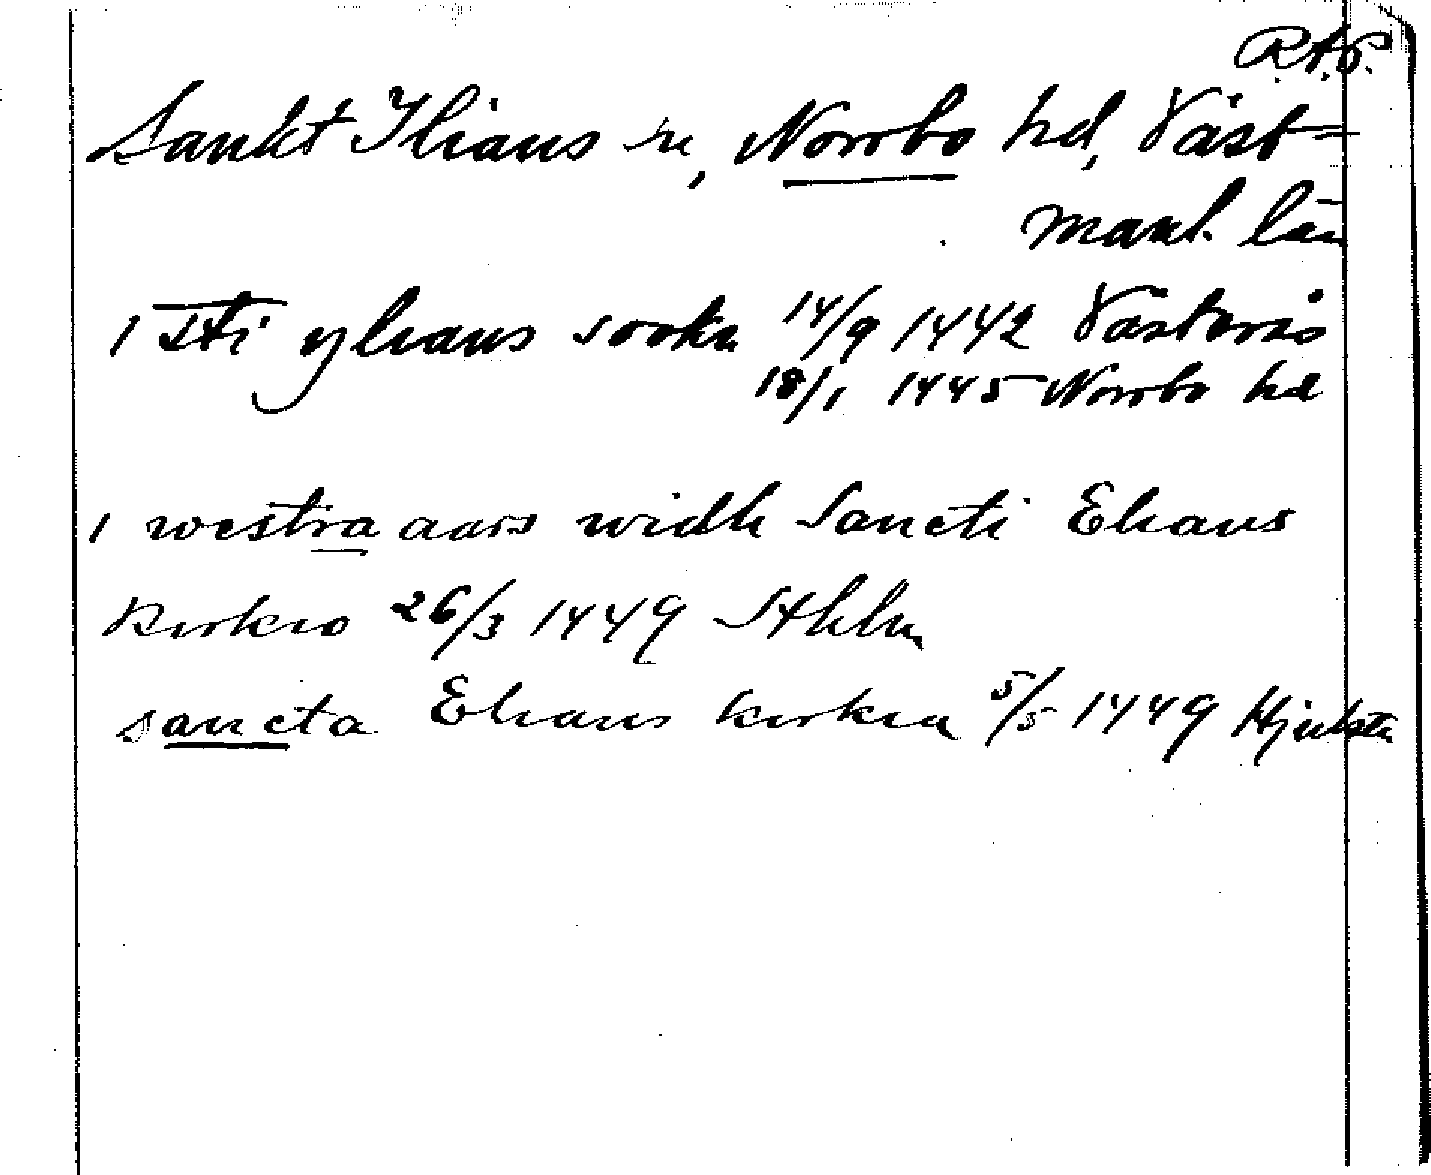 R.A.P.
Sankt Ilians sn, Norrbo hd, Väst-
manl. län
i Sti ylians sookn 14/9 1442 Västerås
18/1 1445 Norrbo hd
i westra aars widh Sancti Elians
kirkio 26/3 1449 Sthlm
sancta Elians kirkea 5/5 1449